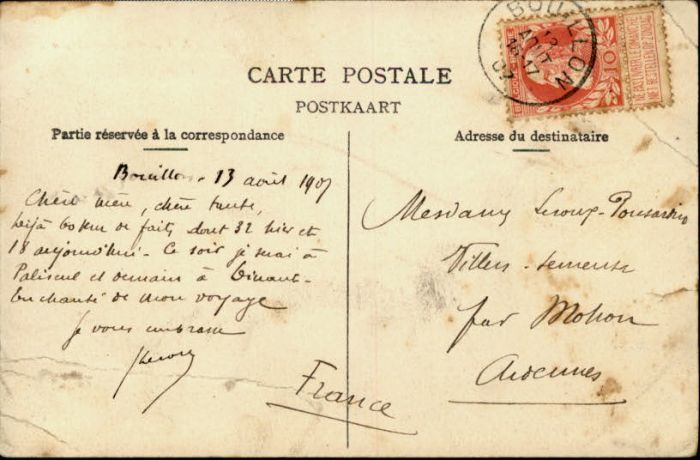 BOUILLON
13
AOUT
07
10
NE PAS LIVRER LE DIMANCHE
CARTE POSTALE
POSTKAART
Partie réservée à la correspondance
Adresse du destinataire
Bouillon - 13 août 1907
Chère mère, chère tante,
Déjà 60 km de faits, dont 32 hier et
18 aujourd'hui - Ce soir je serai à
Paliseul et demain à Dinant -
Enchanté de mon voyage
Je vous embrasse
Mesdames Leroux-Ponsardin
Villers-Semeuse
par Mohon
Ardennes
France